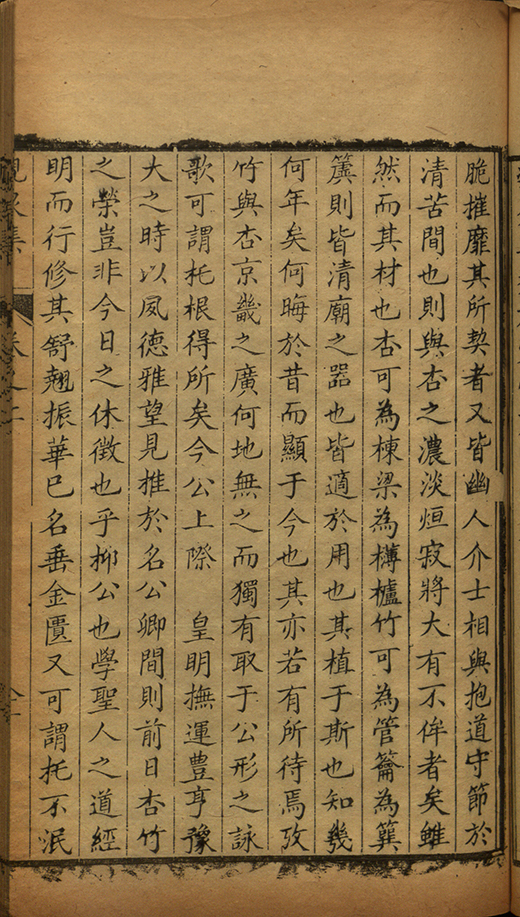 脆摧靡其所契者又皆幽人介士相與抱道守節於
清苦間也則與杏之濃淡烜寂將大有不侔者矣雖
然而其材也杏可為棟梁為欂櫨竹可為管籥為簨
簴則皆清廟之器也皆適於用也其植于斯也知幾
何年矣何晦於昔而顯于今也其亦若有所待焉攷
竹與杏京畿之廣何地無之而獨有取于公形之詠
歌可謂托根得所矣今公上際 皇明撫運豊亨豫
大之時以夙德雅望見推於名公卿間則前日杏竹
之榮豈非今日之休徵也乎抑公也學聖人之道經
明而行修其舒翹振華已名垂金匱又可謂托不泯
集 卷之二